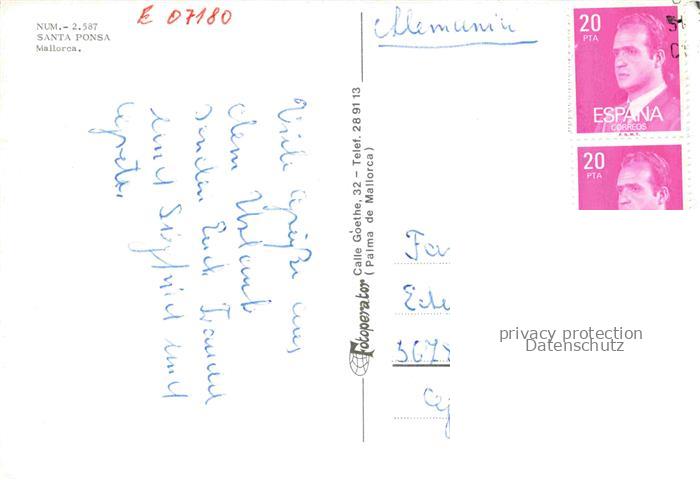 NUM.- 2.587
SANTA PONSA
Mallorca.
E 07180
Viele Grüße aus
dem Urlaub
senden Euch Traudel
und Siegfried und
Agreta.
Fotoperator Calle Góethe, 32 - Telef. 28 91 13
(Palma de Mallorca)
Alemania
20
PTA
ESPAÑA
CORREOS
F.N.M.T.
20
PTA
privacy protection
Datenschutz